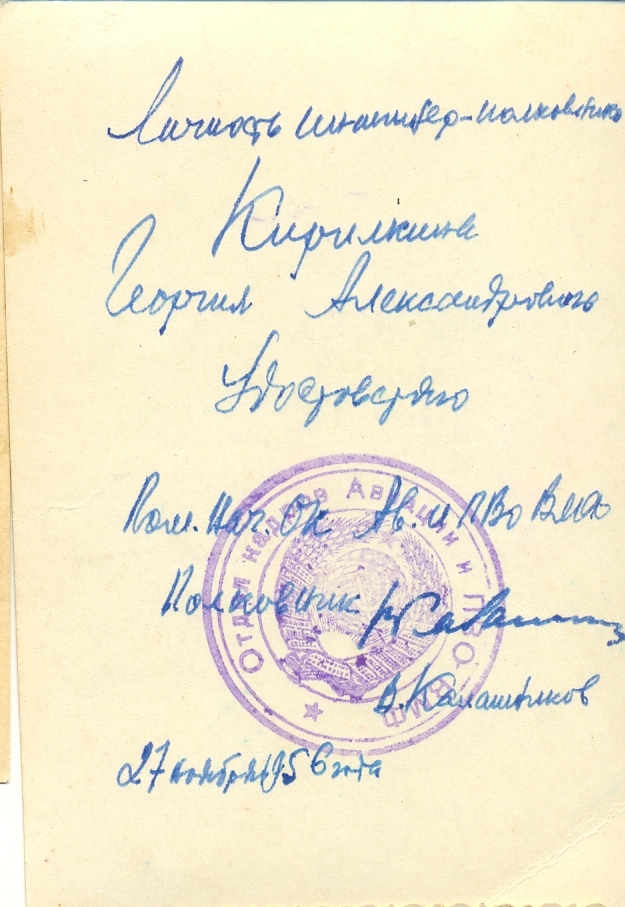 Личность инженер-полковника
Кирилкина
Георгия Александровича
Удостоверяю
Пом. Нач. ОК Ав. и ПВО ВМФ
Полковник
В. Калашников
27 ноября 1956 года
Отдел кадров Авиации и ПВО ВМФ